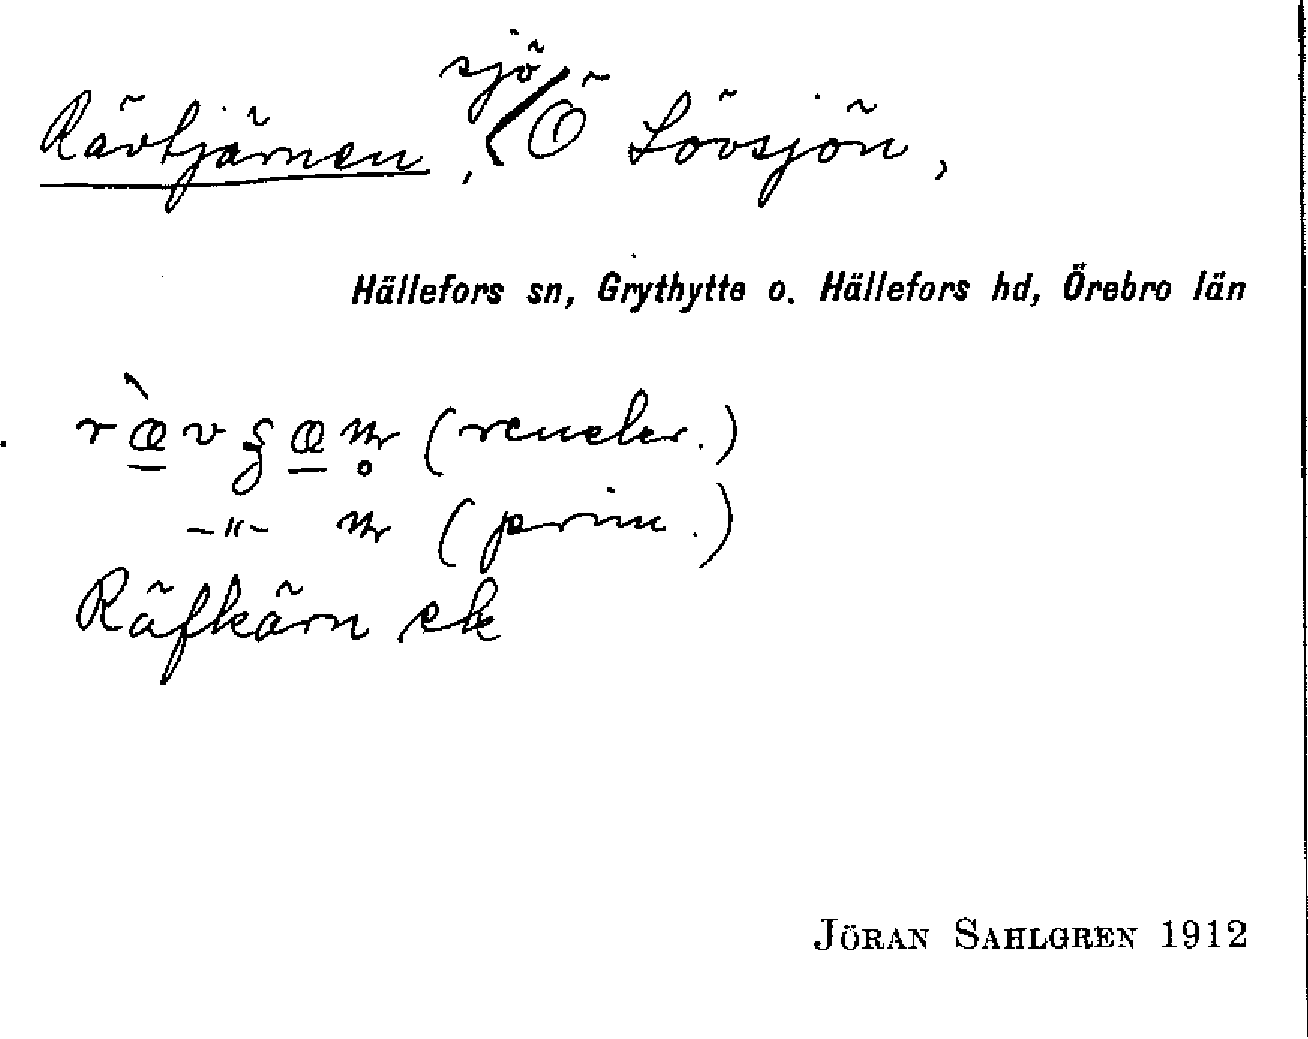 Rävtjärnen, sjö Ö Lövsjön,
Hällefors sn, Grythytte o. Hällefors hd, Örebro län
(prim.)
Räfkärn ek
JÖRAN SAHLGREN 1912